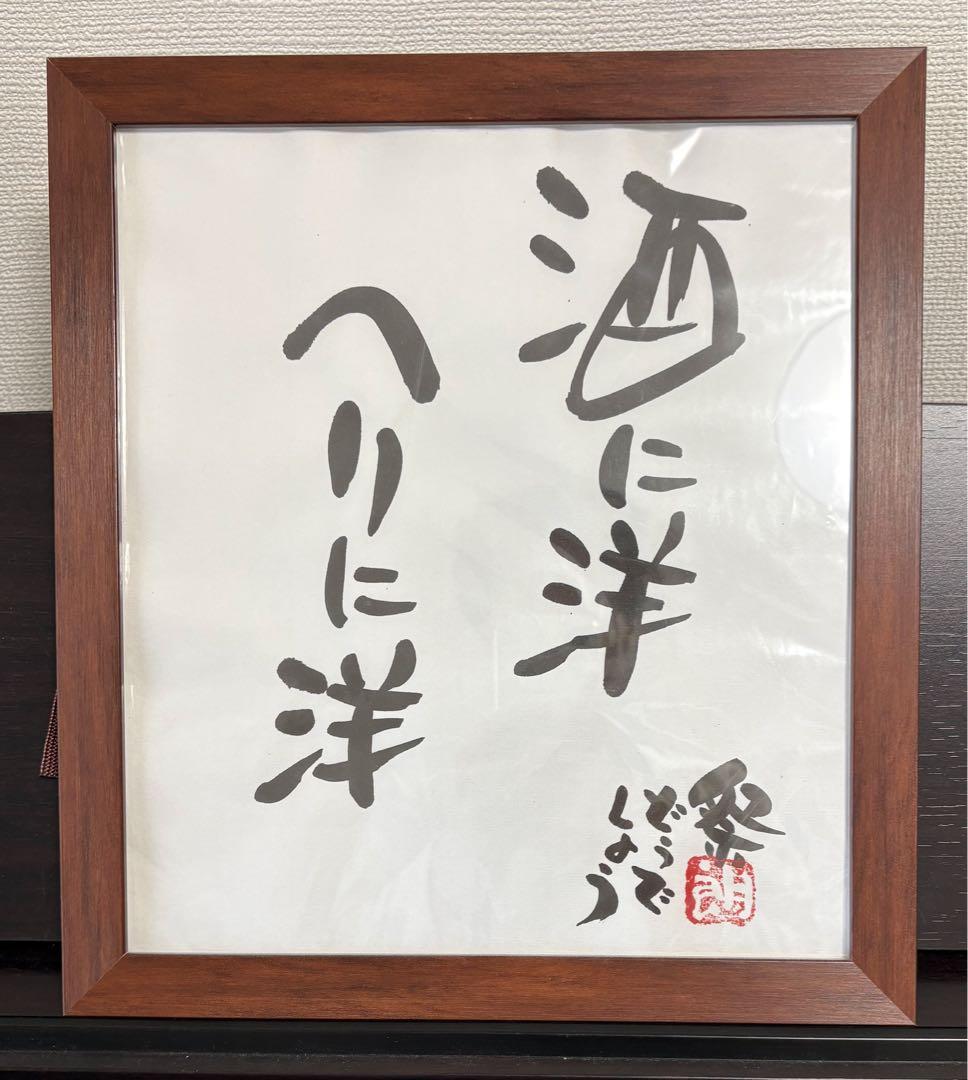 酒に洋
へりに洋
祭
どうで
しょう